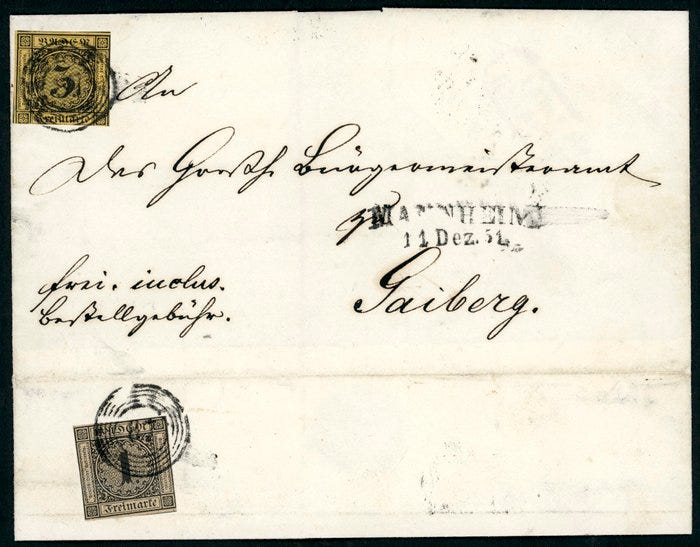 BADEN
3
Freimarke
An
Das Großh Bürgermeisteramt
MANNHEIM
11 Dez. 51.
Gaiberg.
frei. inclus.
Bestellgebühr.
BADEN
1
Freimarke